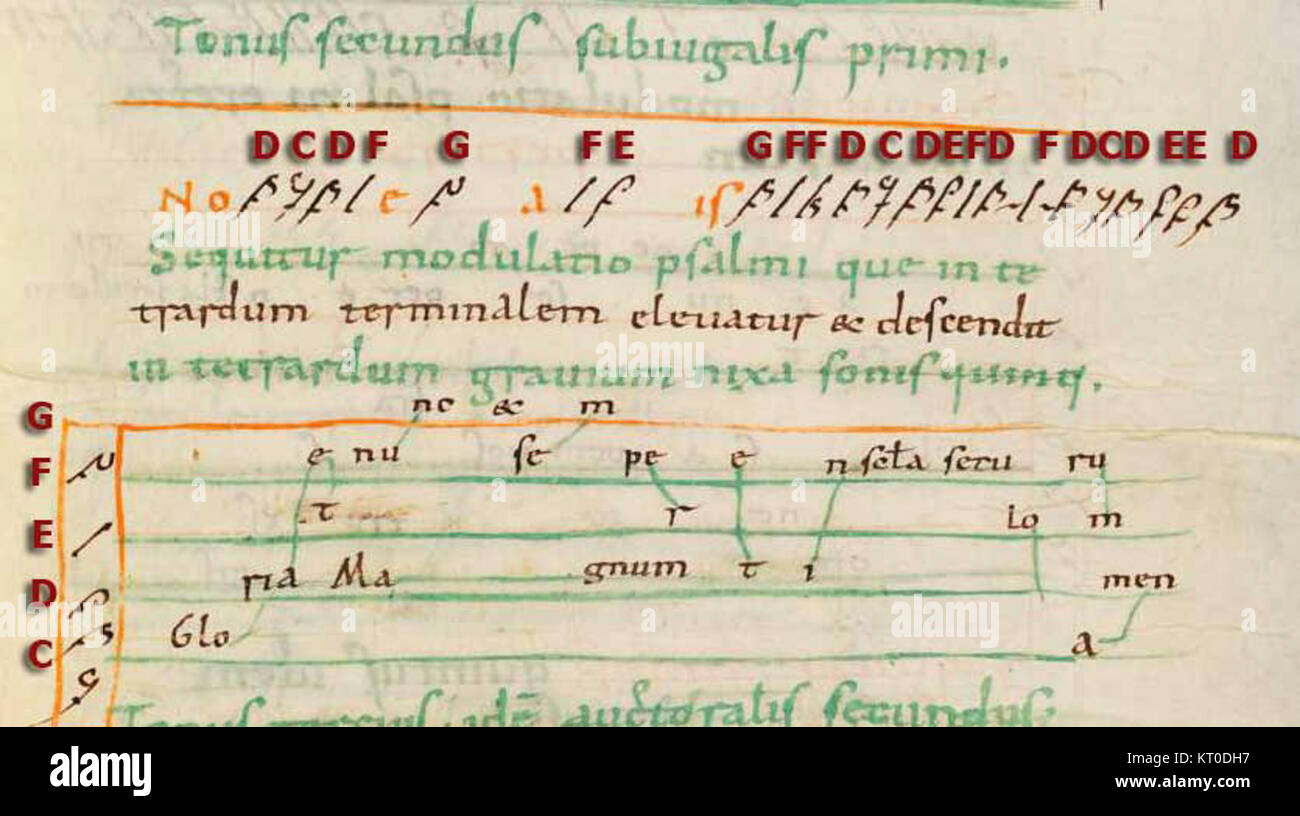 Tonus secundus subiugalis primi.
D C D F G F E G FF D C DEFD F DCD EE D
No e a is
Sequitur modulatio psalmi que in te
trardum terminalem eleuatur & descendit
in tetrardum grauium nixa sonis quinq.
G
no & m
F
e nu se pe e n scła secu ru
E
t r lo m
D
ria Ma gnum t i men
C
Glo a
alamy
Image ID: KT0DH7
www.alamy.com